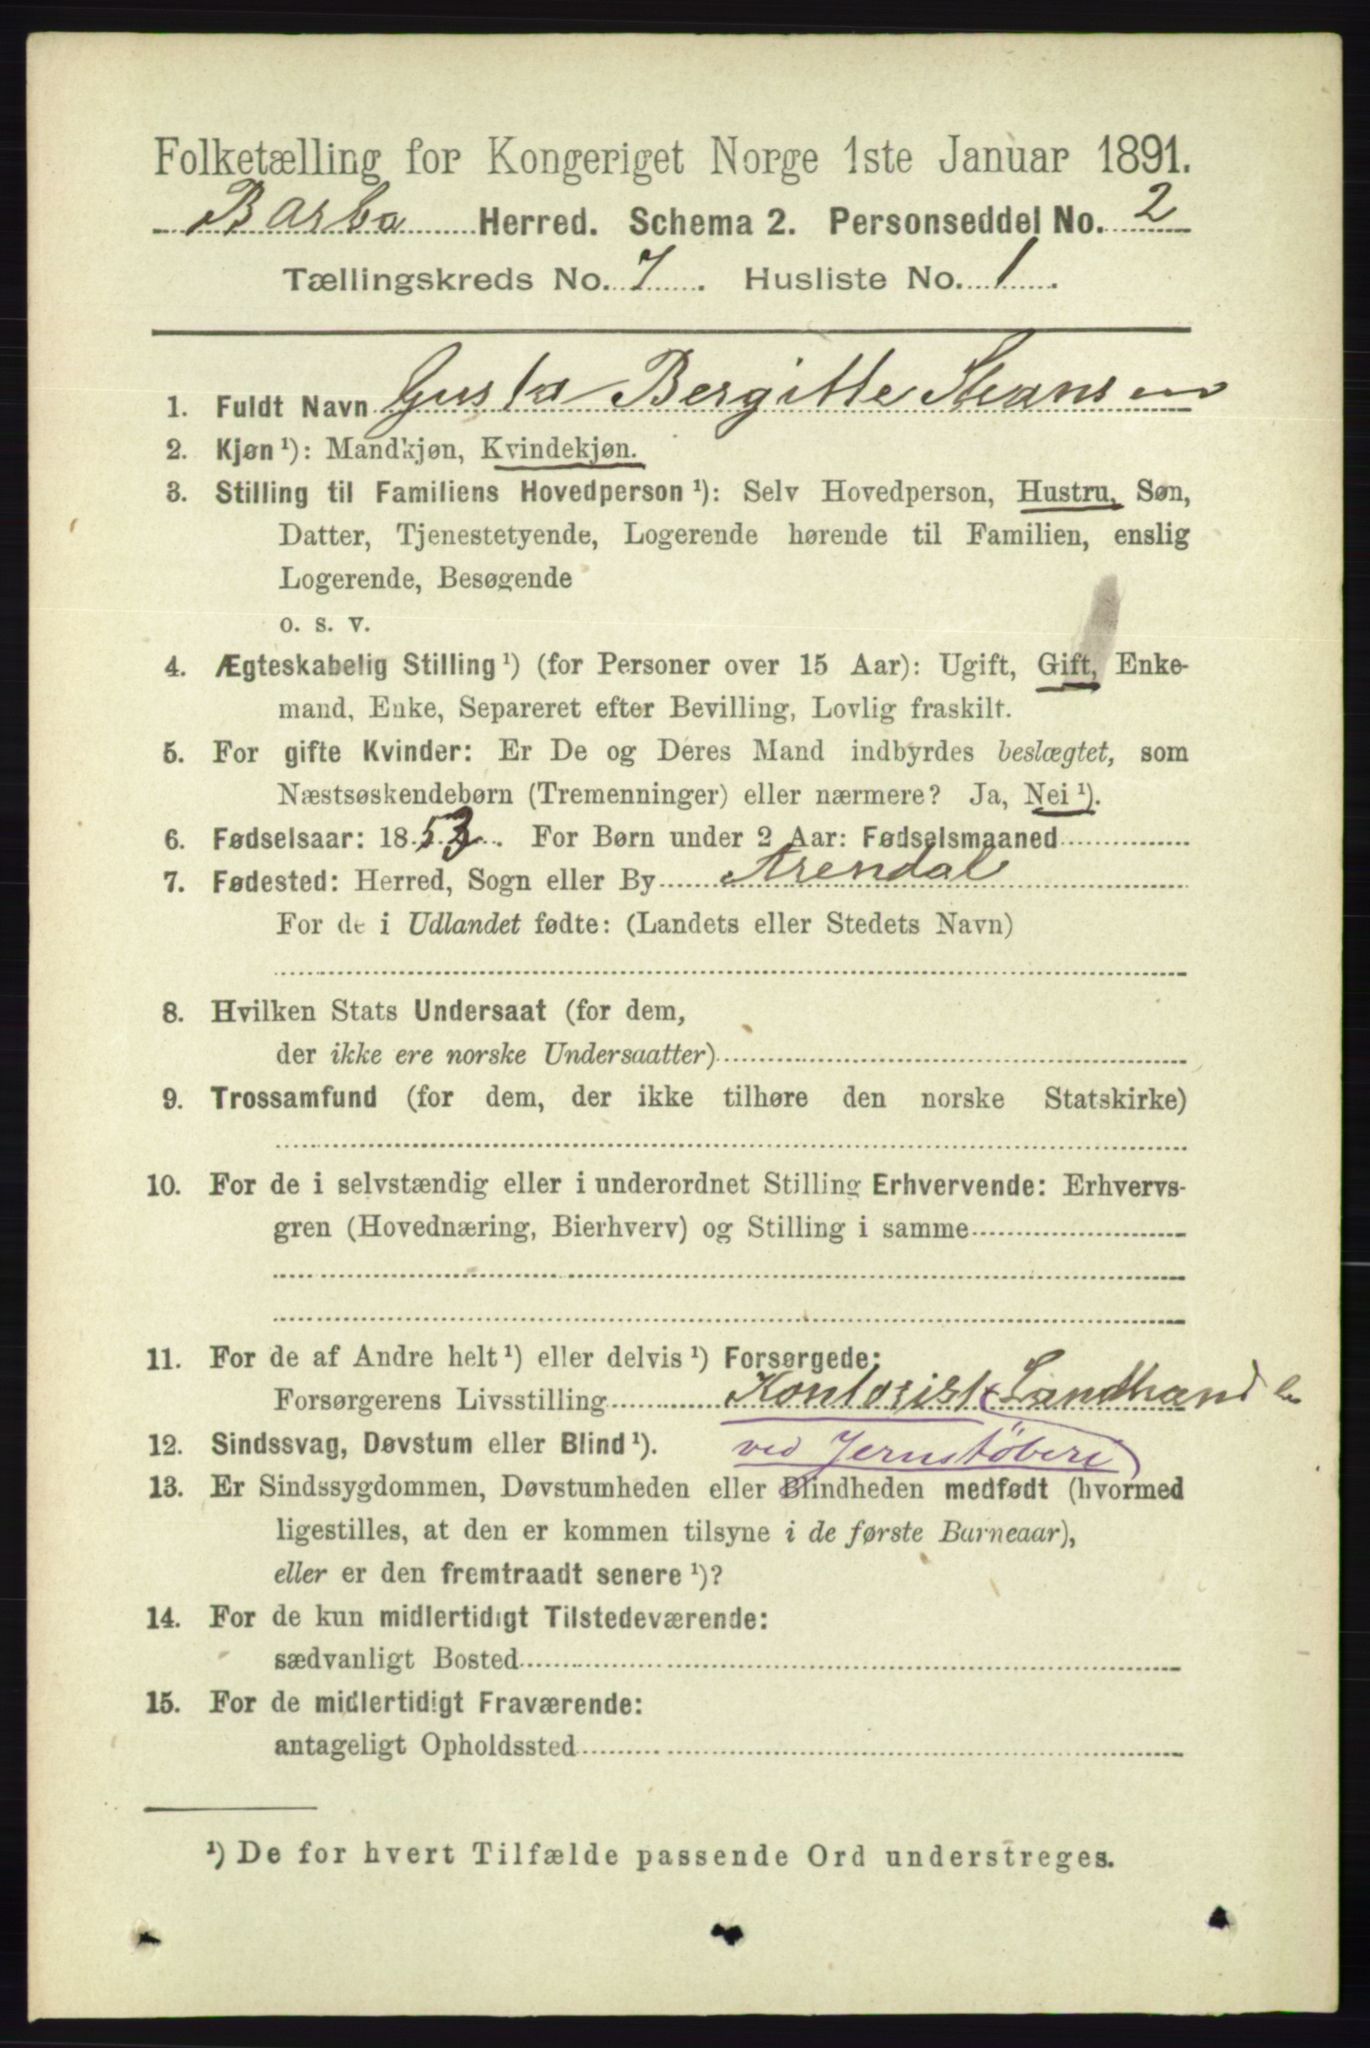 Folketælling for Kongeriget Norge 1ste Januar 1891.
Barbo Herred. Schema 2. Personseddel No. 2
Tællingskreds No. 7. Husliste No. 1.
1. Fuldt Navn Gusta Bergitte Hansen
2. Kjøn ¹): Mandkjøn, Kvindekjøn.
3. Stilling til Familiens Hovedperson ¹): Selv Hovedperson, Hustru, Søn,
Datter, Tjenestetyende, Logerende hørende til Familien, enslig
Logerende, Besøgende
o. s. v.
4. Ægteskabelig Stilling ¹) (for Personer over 15 Aar): Ugift, Gift, Enke-
mand, Enke, Separeret efter Bevilling, Lovlig fraskilt.
5. For gifte Kvinder: Er De og Deres Mand indbyrdes beslægtet, som
Næstsøskendebørn (Tremenninger) eller nærmere? Ja, Nei ¹).
6. Fødselsaar: 1853. For Børn under 2 Aar: Fødselsmaaned
7. Fødested: Herred, Sogn eller By Arendal
For de i Udlandet fødte: (Landets eller Stedets Navn)
8. Hvilken Stats Undersaat (for dem,
der ikke ere norske Undersaatter)
9. Trossamfund (for dem, der ikke tilhøre den norske Statskirke)
10. For de i selvstændig eller i underordnet Stilling Erhvervende: Erhvervs-
gren (Hovednæring, Bierhverv) og Stilling i samme
11. For de af Andre helt ¹) eller delvis ¹) Forsørgede:
Forsørgerens Livsstilling Kontorist Landhandler
12. Sindssvag, Døvstum eller Blind ¹). ved Jernstøberi
13. Er Sindssygdommen, Døvstumheden eller Blindheden medfødt (hvormed
ligestilles, at den er kommen tilsyne i de første Barneaar),
eller er den fremtraadt senere ¹)?
14. For de kun midlertidigt Tilstedeværende:
sædvanligt Bosted
15. For de midlertidigt Fraværende:
antageligt Opholdssted
¹) De for hvert Tilfælde passende Ord understreges.